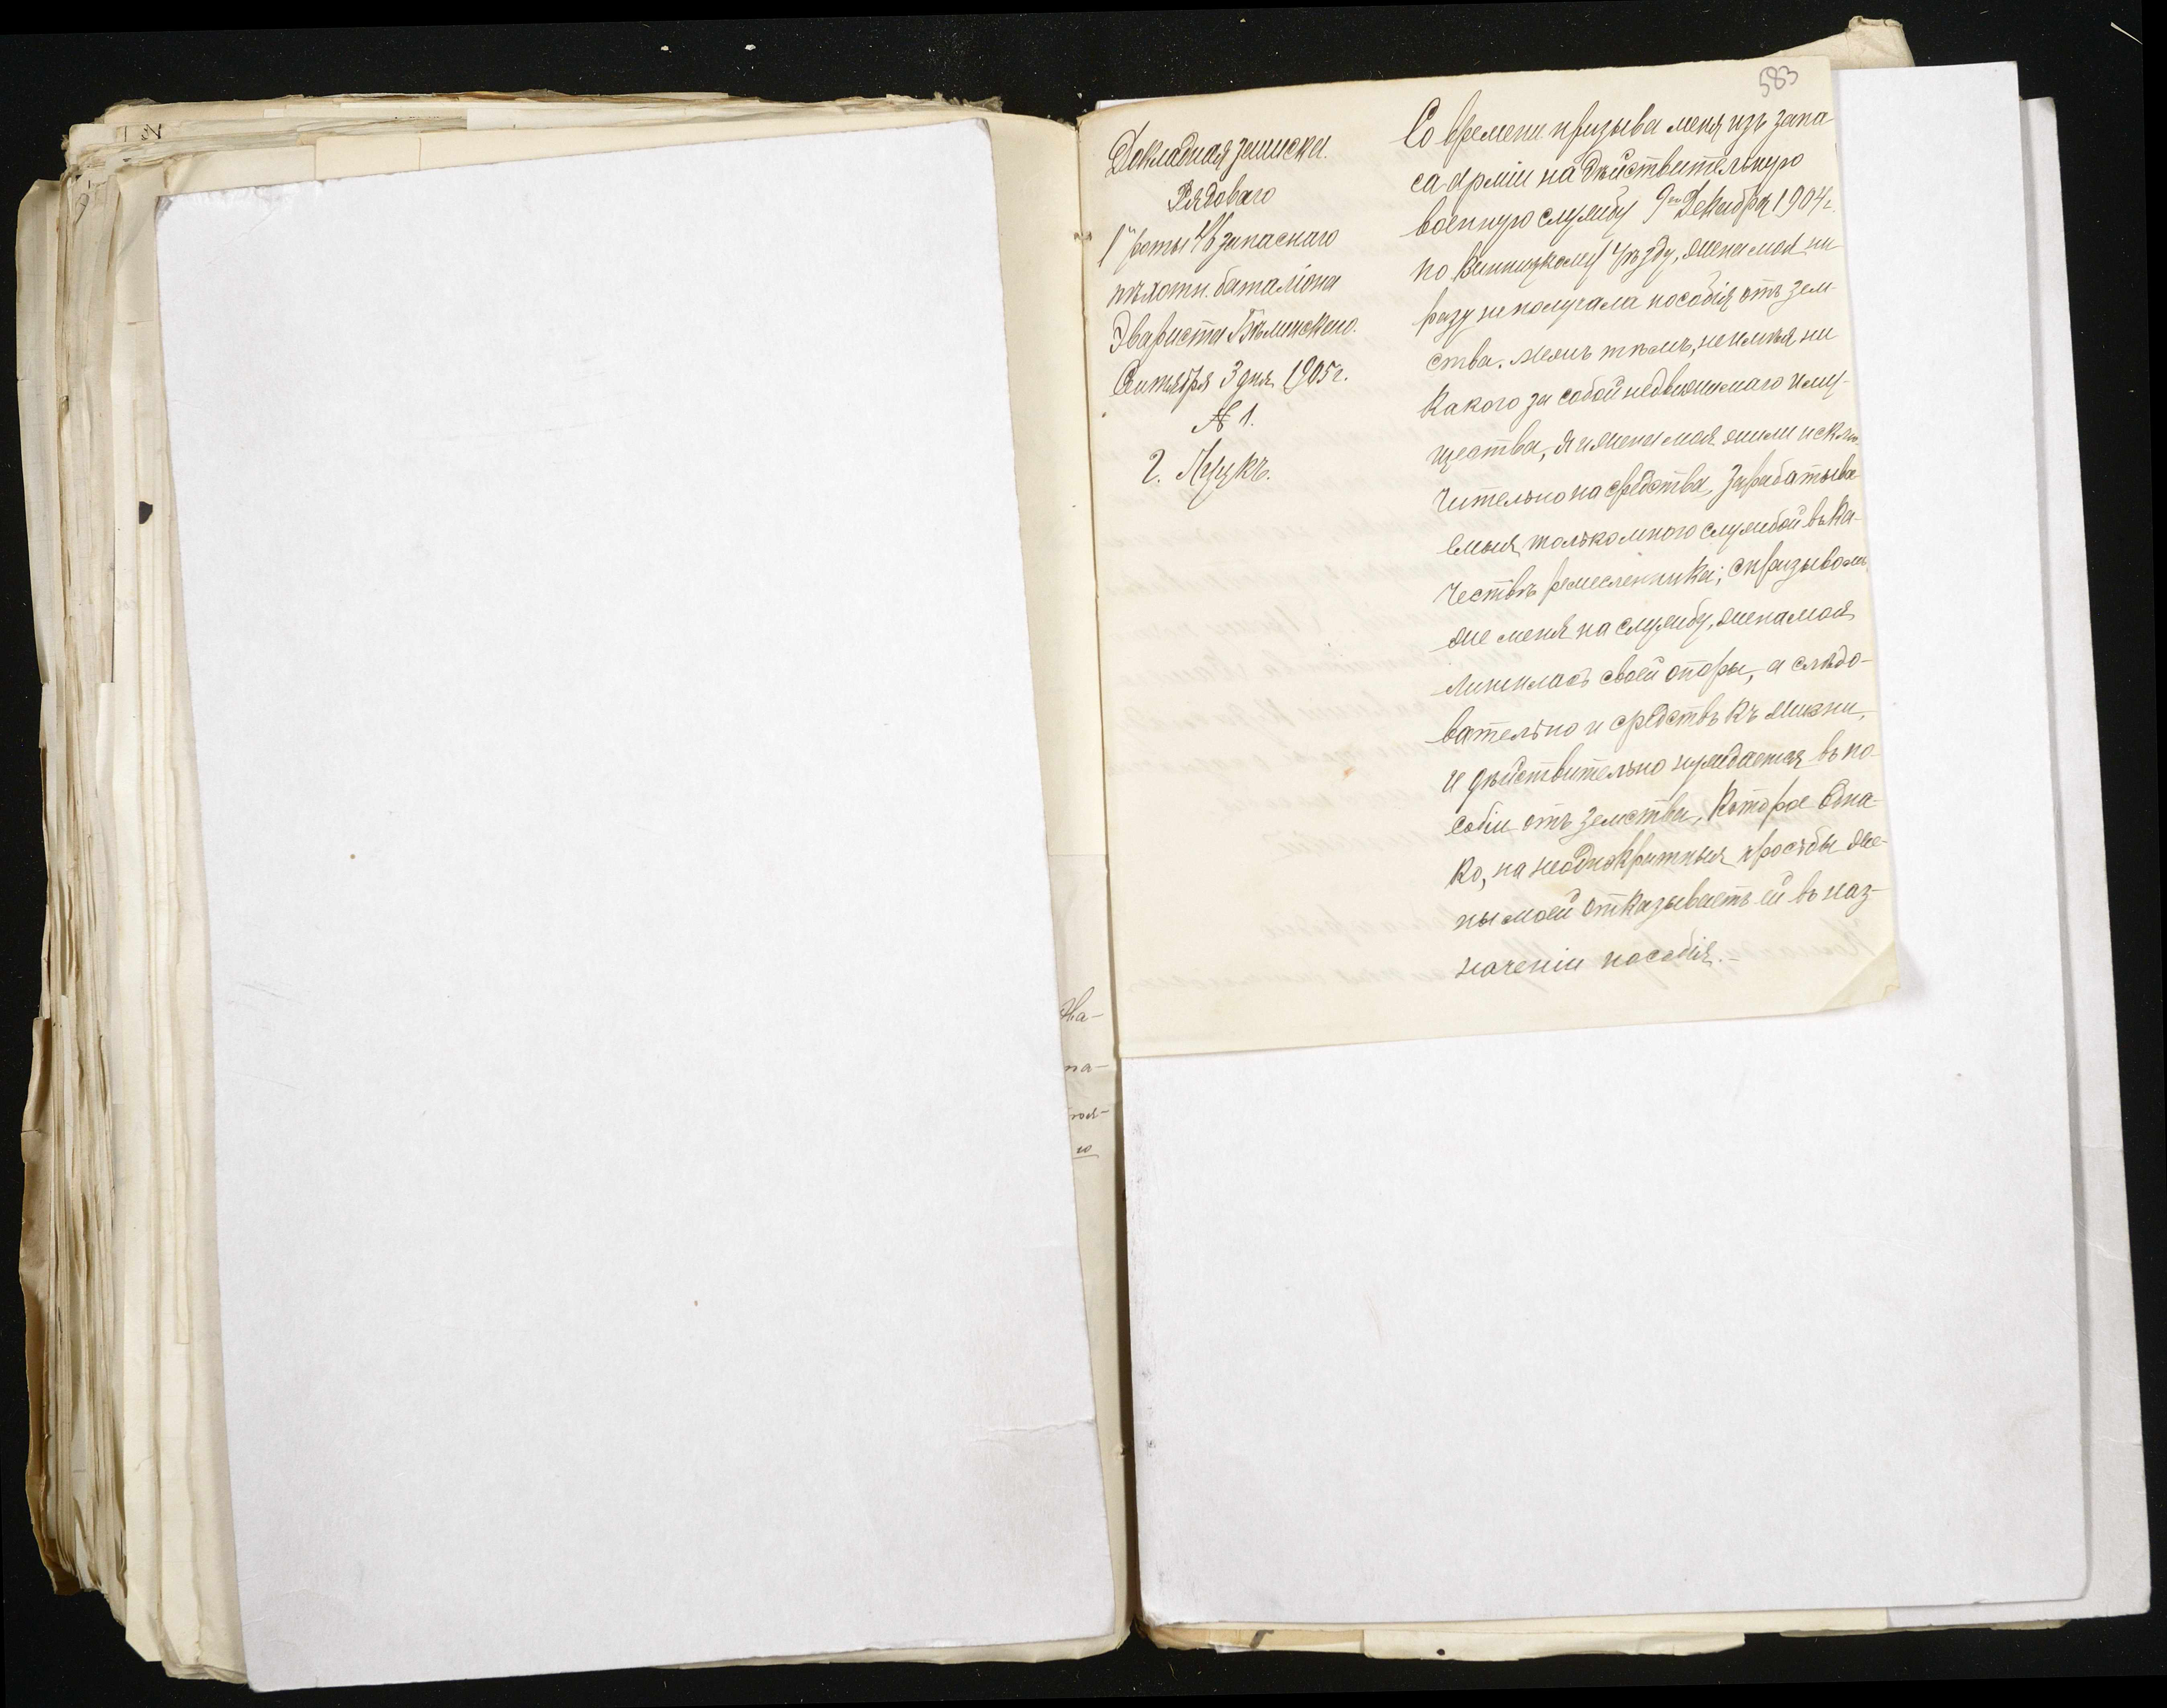 583
Докладная записка.
Рядоваго
1й роты 46 запаснаго
пѣхотн. баталіона
Эвариста Бѣлинскаго.
Сентября 3 дня 1905 г.
№ 1.
г. Луцкъ.
Со времени призыва меня изъ запа-
са арміи на дѣйствительную
военную службу 9го Декабря 1904 г.
по Винницкому уѣзду, жена моя ни
разу не получала пособія отъ зем-
ства. Между тѣмъ, не имѣя ни
какого за собой недвижимаго иму-
щества, я и жена моя жили исклю-
чительно на средства, зарабатыва-
емыя только мною службой въ ка-
чествѣ ремесленника; с призывомъ
же меня на службу, жена моя
лишилась своей опоры, а слѣдо-
вательно и средствъ къ жизни,
и дѣйствительно нуждается въ по-
собіи отъ земства, которое одна-
ко, на неоднократныя просьбы же-
ны моей отказываетъ ей въ наз-
наченіи пособія.-
на-
па-
ю